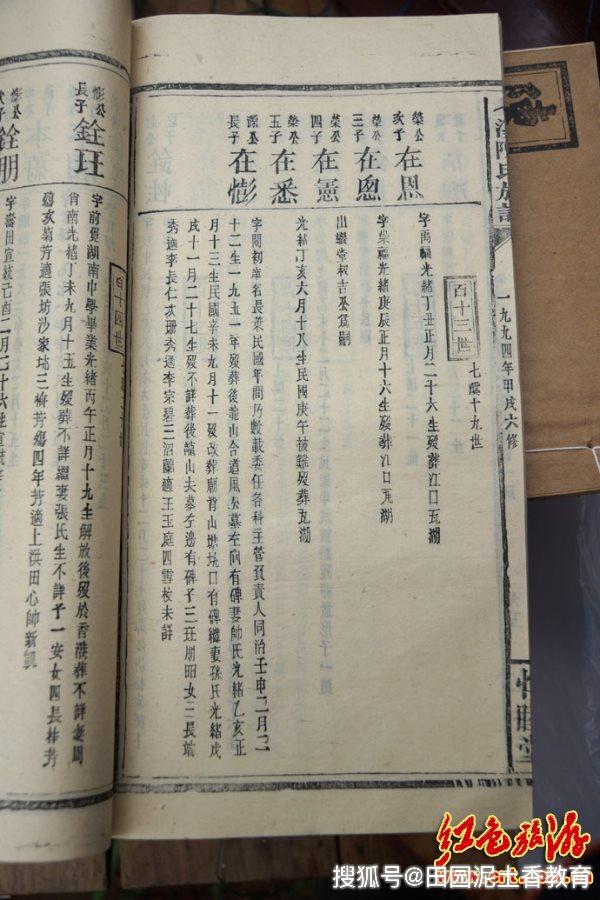 一九九四年甲戌六修
百十三世
七蔭十九世
次子
在恩
字禹福光緒丁丑正月二十六生殁葬江口瓦湖
三子
在恖
字集福光緒庚辰正月十六生殁葬江口瓦湖
四子
在憲
出繼堂叔吉公為嗣
五子
在悉
光緒丁亥六月十八生民國庚午被難殁葬瓦湖
源公
長子
在
名長業民國年間乃數載委任各科主管負責人同治壬申二月二
十二生一九五一年殁葬後龍山合道風公墓左向有碑妻帥氏光緒乙亥正
月十三生民國辛未九月十一殁改葬廟背山塅坑口有碑繼妻孫氏光緒戊
戌十一月二十七生殁不詳葬後龍山夫墓左邊有碑子三玨朋昭女三長
秀適李長仁次珊秀適李宗碧三沼蘭適王玉庭四雪枚未詳
百十四世
長子
銓玨
字前 湖南中學畢業光緒丙午正月十九生解放後殁於香港葬不詳妻周
肖南光緒丁未九月十五生殁葬不詳繼妻張氏生不詳子一安女四長桂芳
適張坊沙家坑三梅芳殤四年芳適上洪田心帥新
次子
銓朋
宣統己酉二月二十六生宣統
紅色旅游
搜狐号@田园泥土香教育